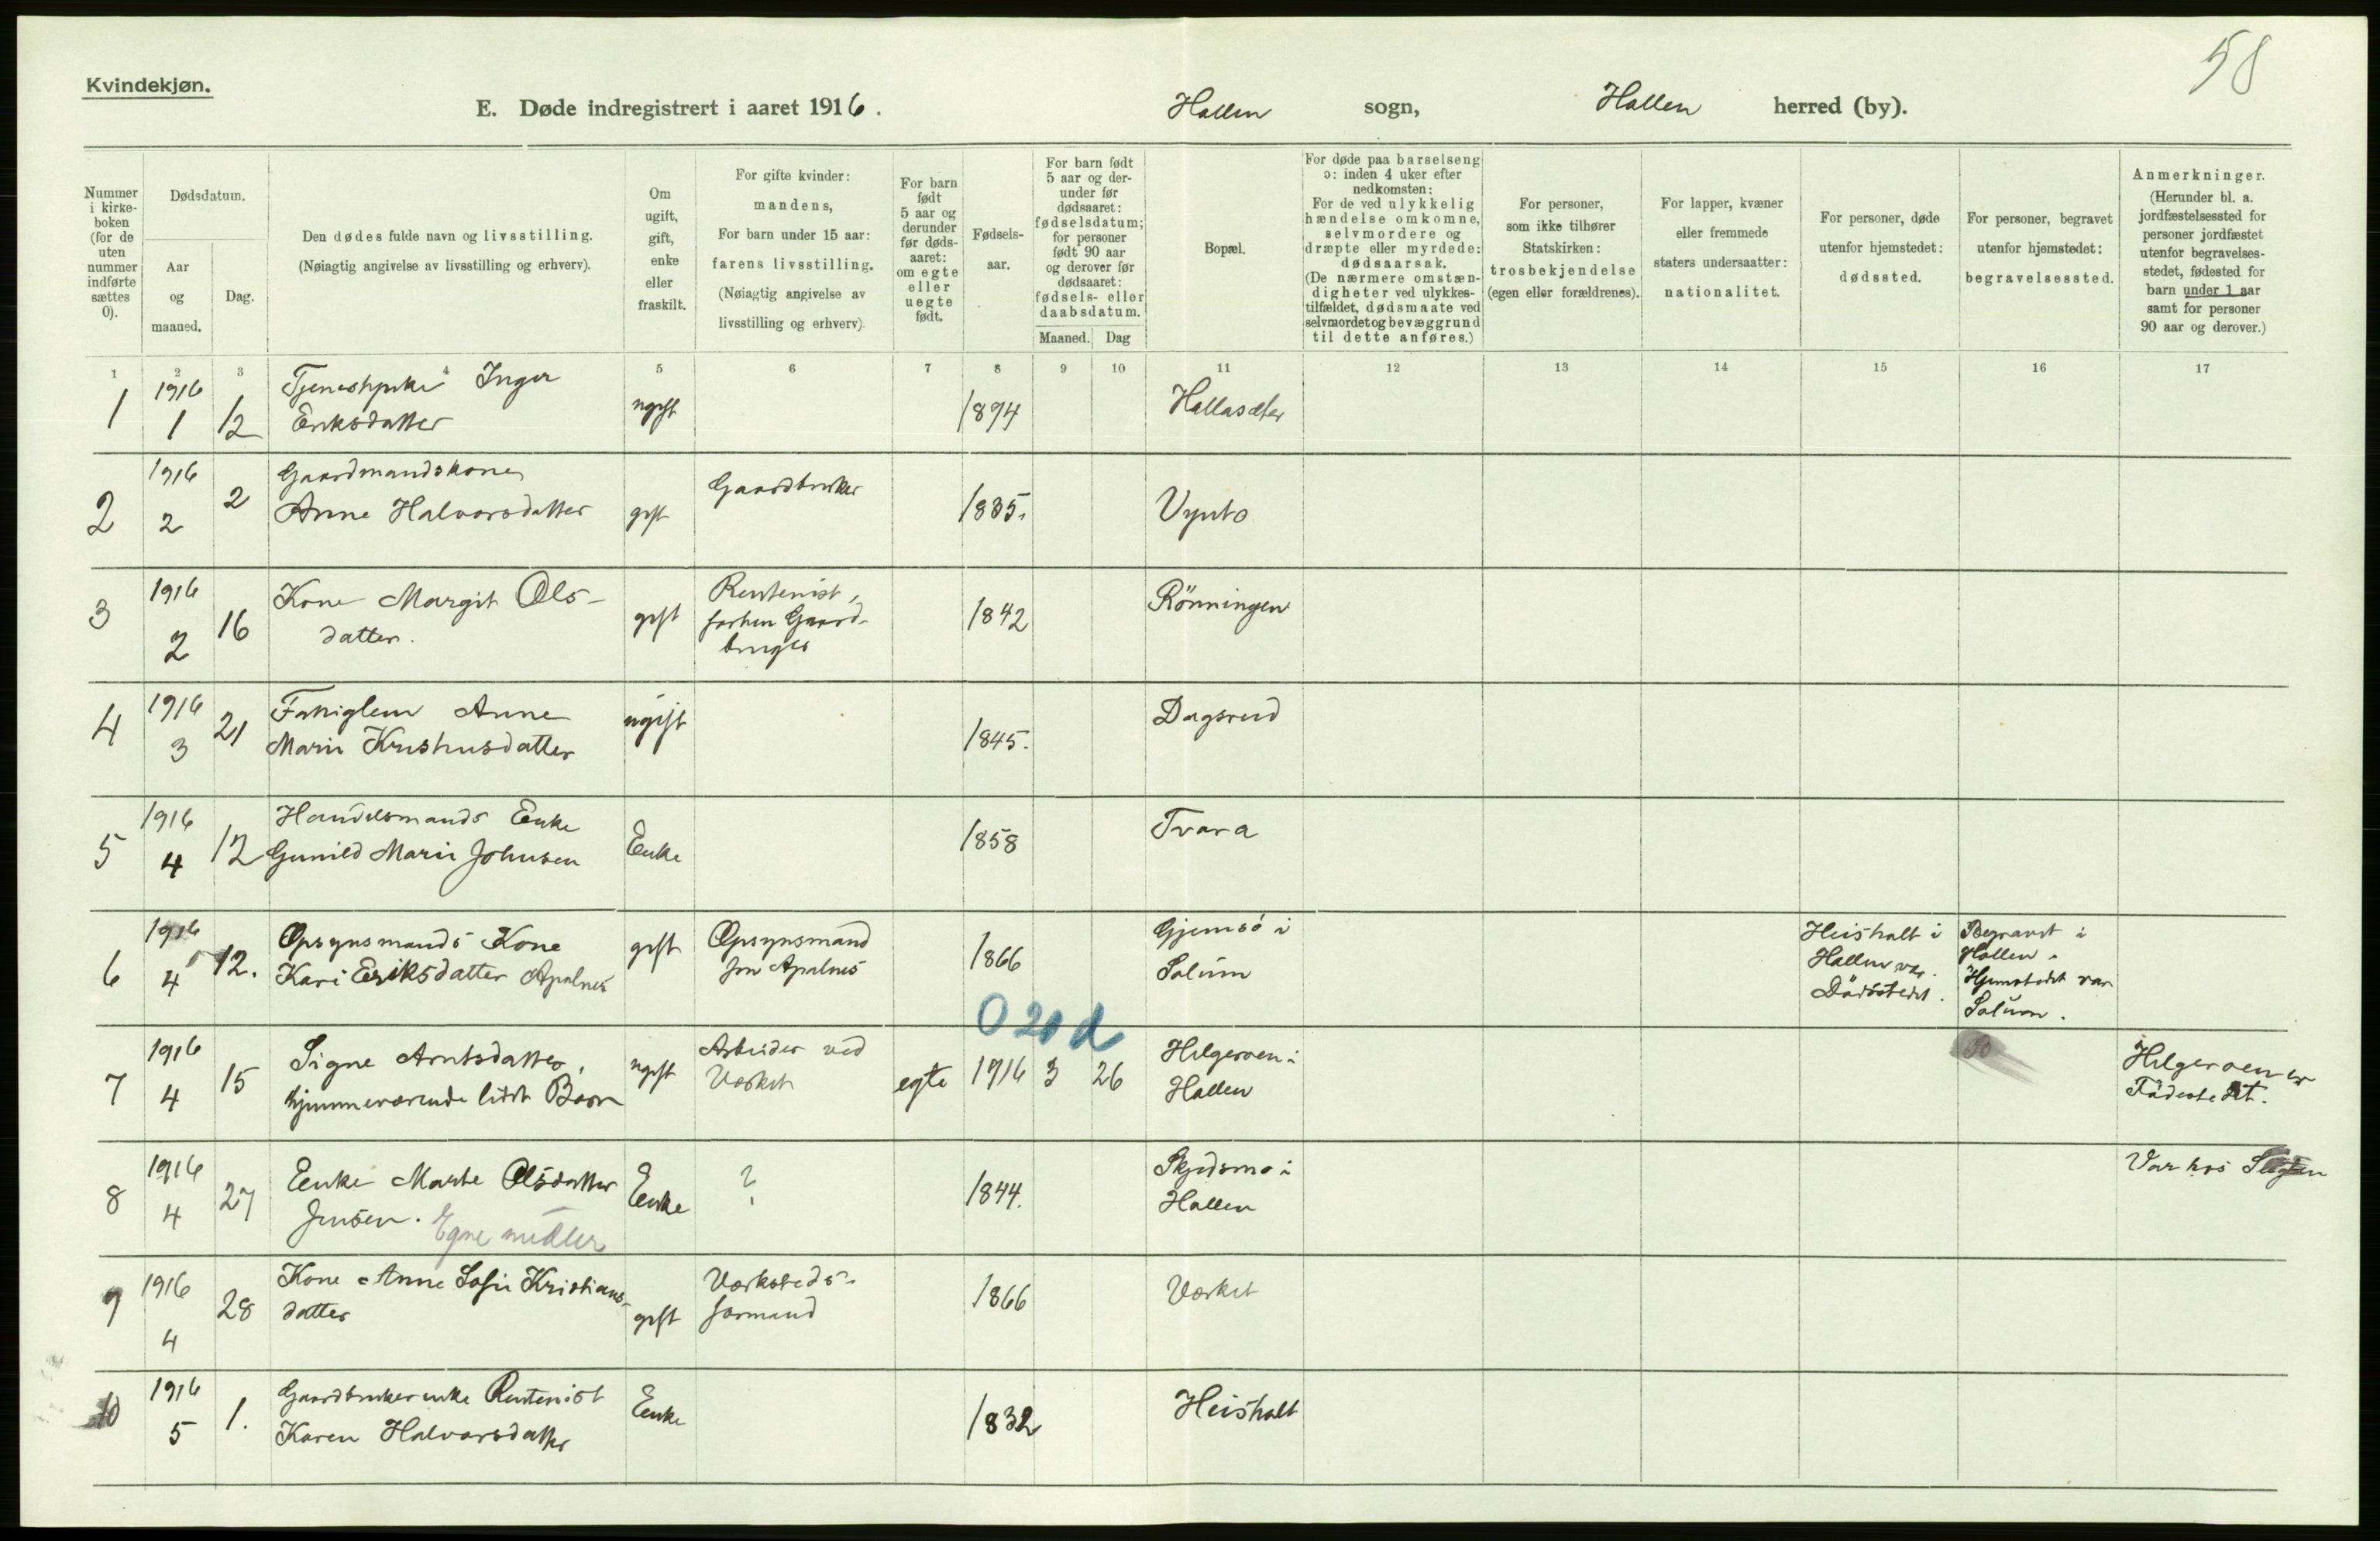 58
Kvindekjøn.
E. Døde indregistrert i aaret 1916. Hollen sogn, Hollen herred (by).
Nummer i kirkeboken (for de uten nummer indførte sættes 0).
Dødsdatum.
Aar og maaned.
Dag.
Den dødes fulde navn og livsstilling.
(Nøiagtig angivelse av livsstilling og erhverv).
Om ugift, gift, enke eller fraskilt.
For gifte kvinder:
mandens,
For barn under 15 aar:
farens livsstilling.
(Nøiagtig angivelse av
livsstilling og erhverv).
For barn
født
5 aar og
derunder
før døds-
aaret:
om egte
eller
uegte
født.
Fødsels-
aar.
For barn født
5 aar og der-
under før
dødsaaret:
fødselsdatum;
for personer
født 90 aar
og derover før
dødsaaret:
fødsels- eller
daabsdatum.
Maaned. Dag
Bopæl.
For døde paa barselseng
ɔ: inden 4 uker efter
nedkomsten:
For de ved ulykkelig
hændelse omkomne,
selvmordere og
dræpte eller myrdede:
dødsaarsak.
(De nærmere omstæn-
digheter ved ulykkes-
tilfældet, dødsmaate ved
selvmordet og bevæggrund
til dette anføres.)
For personer,
som ikke tilhører
Statskirken:
trosbekjendelse
(egen eller forældrenes).
For lapper, kvæner
eller fremmede
staters undersaatter:
nationalitet.
For personer, døde
utenfor hjemstedet:
dødssted.
For personer, begravet
utenfor hjemstedet:
begravelsessted.
Anmerkninger.
(Herunder bl. a.
jordfæstelsessted for
personer jordfæstet
utenfor begravelses-
stedet, fødested for
barn under 1 aar
samt for personer
90 aar og derover.)
1 2 3 4 5 6 7 8 9 10 11 12 13 14 15 16 17
1 1916 1 12 Inger Eriksdatter ugift 1894
2 1916 2 2 Gaardmandskone
Anne Halvorsdatter gift Gaardbruker 1835.
3 1916 2 16 Kone Margit Ols-
datter. gift Rentenist,
forhen Gaard-
bruger 1842 Rönningen
4 1916 3 21 Fattiglem Anne
Marie ugift 1845. Dagsrud
5 1916 4 12 Handelsmands Enke
Gunild Marie Johnsen Enke 1858 Tvara
6 1916 4 12. Opsynsmands Kone
Kari Eriksdatter Apalnes gift Opsynsmand
Apalnes 1866 Gjemsö i
Solum Heisholt i
Hollen var
Dödsstedet. Begravet i
Hollen.
Hjemstedet var
Solum.
0 20 d
7 1916 4 15 Signe Arntsdatter,
hjemmeværende lidet Barn ugift Arbeider ved
Værket egte 1916 3 26 Helgeroen i
Hollen Helgeroen er
Födestedet.
8 1916 4 27 Enke Marte Olsdatter
Jensen. Egne midler Enke ? 1844. Skjedsmo i
Hollen Var hos Slegten
9 1916 4 28 Kone Anne Sofie Kristians-
datter gift Værksteds-
formand 1866 Værket
10 1916 5 1. Gaardbrukerenke Rentenist
Karen Halvorsdatter Enke 1832 Heisholt